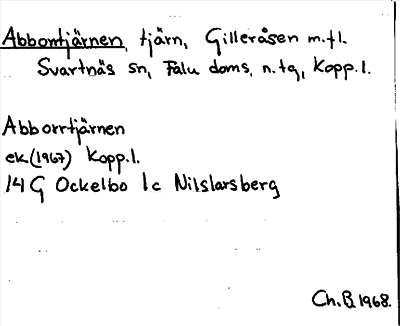 Abborrtjärnen, tjärn, Gilleråsen m.fl.
Svartnäs sn, Falu doms. n. tg, Kopp.l.
Abborrtjärnen
ek (1967) Kopp.l.
14 G Ockelbo 1c Nilslarsberg
Ch.B. 1968.